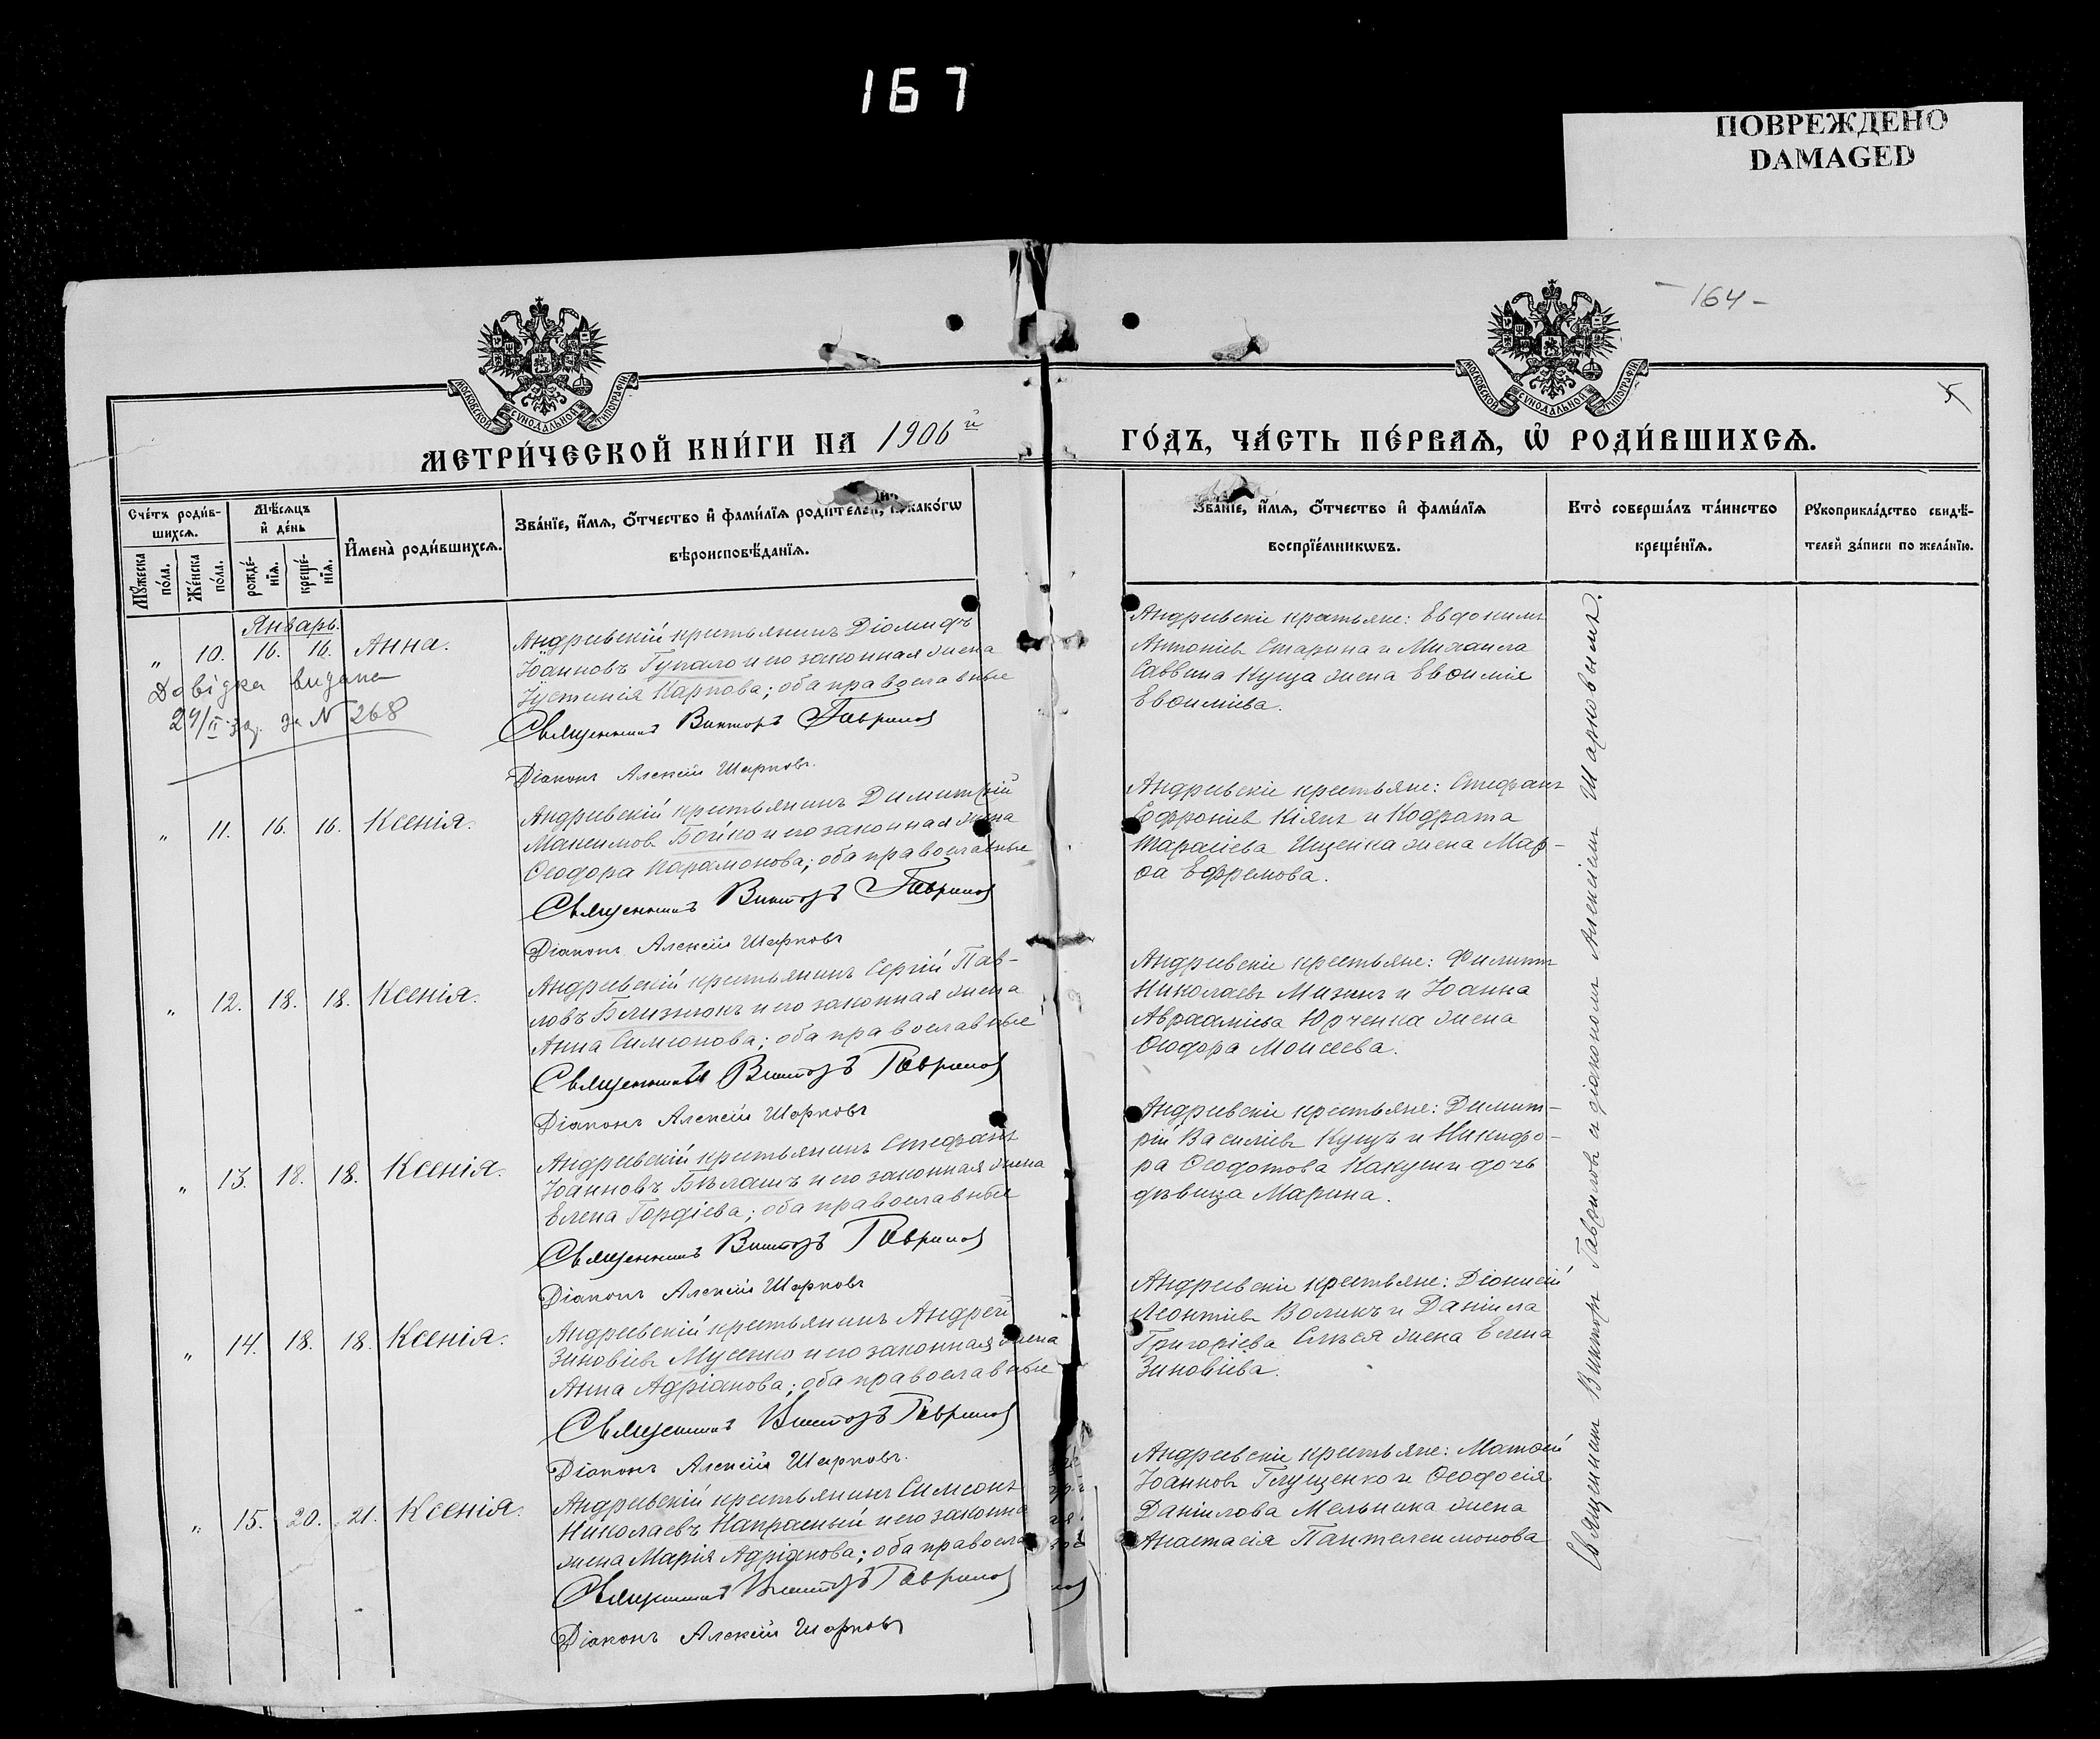 167
ПОВРЕЖДЕНО
DAMAGED
- 164 -
5
МОСКОВСКОЙ СѴНОДАЛЬНОЙ ТИПОГРАФІИ
МОСКОВСКОЙ СѴНОДАЛЬНОЙ ТИПОГРАФІИ
МЕТРИ́ЧЕСКОЙ КНИ́ГИ НА 1906й ГО́ДЪ, ЧА́СТЬ ПЕ́РВАѦ, Ѽ РОДИ́ВШИХСѦ.
Сче́тъ роди́в-
шихсѧ.
Мꙋжеска по́ла.
Же́нска по́ла.
Мѣ́сѧцъ
и҆ де́нь
рожде́-
нїѧ.
креще́-
нїѧ.
И҆мена̀ роди́вшихсѧ.
Зва́нїе, и҆́мѧ, ѻ҆́тчество и҆ фами́лїѧ роди́телей, и҆ како́гѡ
вѣроисповѣ́данїѧ.
Зва́нїе, и҆́мѧ, ѻ҆́тчество и҆ фами́лїѧ
воспрїе́мникѡвъ.
Кто̀ соверша́лъ та́инство
креще́нїѧ.
Рꙋкоприкла́дство свидѣ́-
телей за́писи по жела́нїю.
Январь.
" 10. 16. 16. Анна.
Довідка видана
29/II за № 268
Андреевскій крестьянинъ Діомидъ
Іоанновъ Гупало и его законная жена
Іустинія Карпова; оба православные
Священникъ Викторъ Гавриловъ
Діаконъ Алексій Шарковъ.
Андреевскіе крестьяне: Евдокимъ
Антоніевъ Старина и Михаила
Саввина Куща жена Евѳимія
Евѳиміева.
" 11. 16. 16. Ксенія.
Андреевскій крестьянинъ Димитрій
Максимовъ Бойко и его законная жена
Ѳеодора Парамонова; оба православные
Священникъ Викторъ Гавриловъ
Діаконъ Алексій Шарковъ
Андреевскіе крестьяне: Стефанъ
Софроніевъ Кіянъ и Кодрата
Тарасіева Ищенка жена Мар-
ѳа Ефремова.
" 12. 18. 18. Ксенія.
Андреевскій крестьянинъ Сергій Пав-
ловъ Близнюкъ и его законная жена
Анна Симеонова; оба православные
Священникъ Викторъ Гавриловъ
Діаконъ Алексій Шарковъ
Андреевскіе крестьяне: Филиппъ
Николаевъ Мизинъ и Іоанна
Авраамiева Юрченка жена
Ѳеодора Моисеева.
" 13. 18. 18. Ксенія.
Андреевскій крестьянинъ Стефанъ
Іоанновъ Бѣлашъ и его законная жена
Елена Гордіева; оба православные
Священникъ Викторъ Гавриловъ
Діаконъ Алексій Шарковъ
Андреевскіе крестьяне: Димит-
рій Василіевъ Кущъ и Никифо-
ра Ѳеодотова Какуши дочь
дѣвица Марина.
" 14. 18. 18. Ксенія.
Андреевскій крестьянинъ Андрей
Зиновіевъ Мусенко и его законная жена
Анна Адріанова; оба православные
Священникъ Викторъ Гавриловъ
Діаконъ Алексій Шарковъ.
Андреевскіе крестьяне: Діонисій
Леонтіевъ Воликъ и Даніила
Григоріева жена Елена
Зиновіева.
" 15. 20. 21. Ксенія.
Андреевскій крестьянинъ Симеонъ
Николаевъ Напрасный и его законна
жена Марія Адріанова; оба правосла
Священникъ Викторъ Гавриловъ
Діаконъ Алексій Шарковъ
Андреевскіе крестьяне: Матѳій
Іоанновъ Глущенко и Ѳеодосія
Даніилова Мельника жена
Анастасія Пантелеимонова
Священникъ Викторъ Гавриловъ а діакономъ Алексіемъ Шарковымъ.